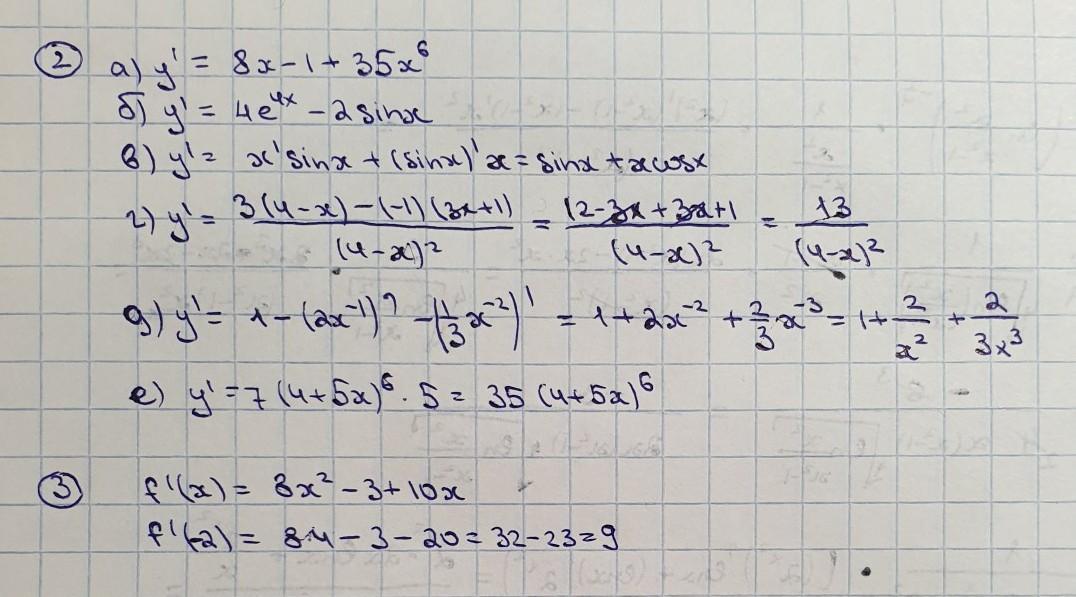 ② а) y' = 8x - 1 + 35x⁶
б) y' = 4e⁴ˣ - 2sinx
в) y' = x'sinx + (sinx)'x = sinx + xcosx
г) y' = 3(4-x) - (-1)(3x+1) / (4-x)² = 12 - 3x + 3x + 1 / (4-x)² = 13 / (4-x)²
д) y' = 1 - (2x⁻¹)' - (1/3 x⁻²)' = 1 + 2x⁻² + 2/3 x⁻³ = 1 + 2/x² + 2/3x³
е) y' = 7(4+5x)⁶ · 5 = 35(4+5x)⁶
③ f'(x) = 8x² - 3 + 10x
f'(-2) = 8·4 - 3 - 20 = 32 - 23 = 9